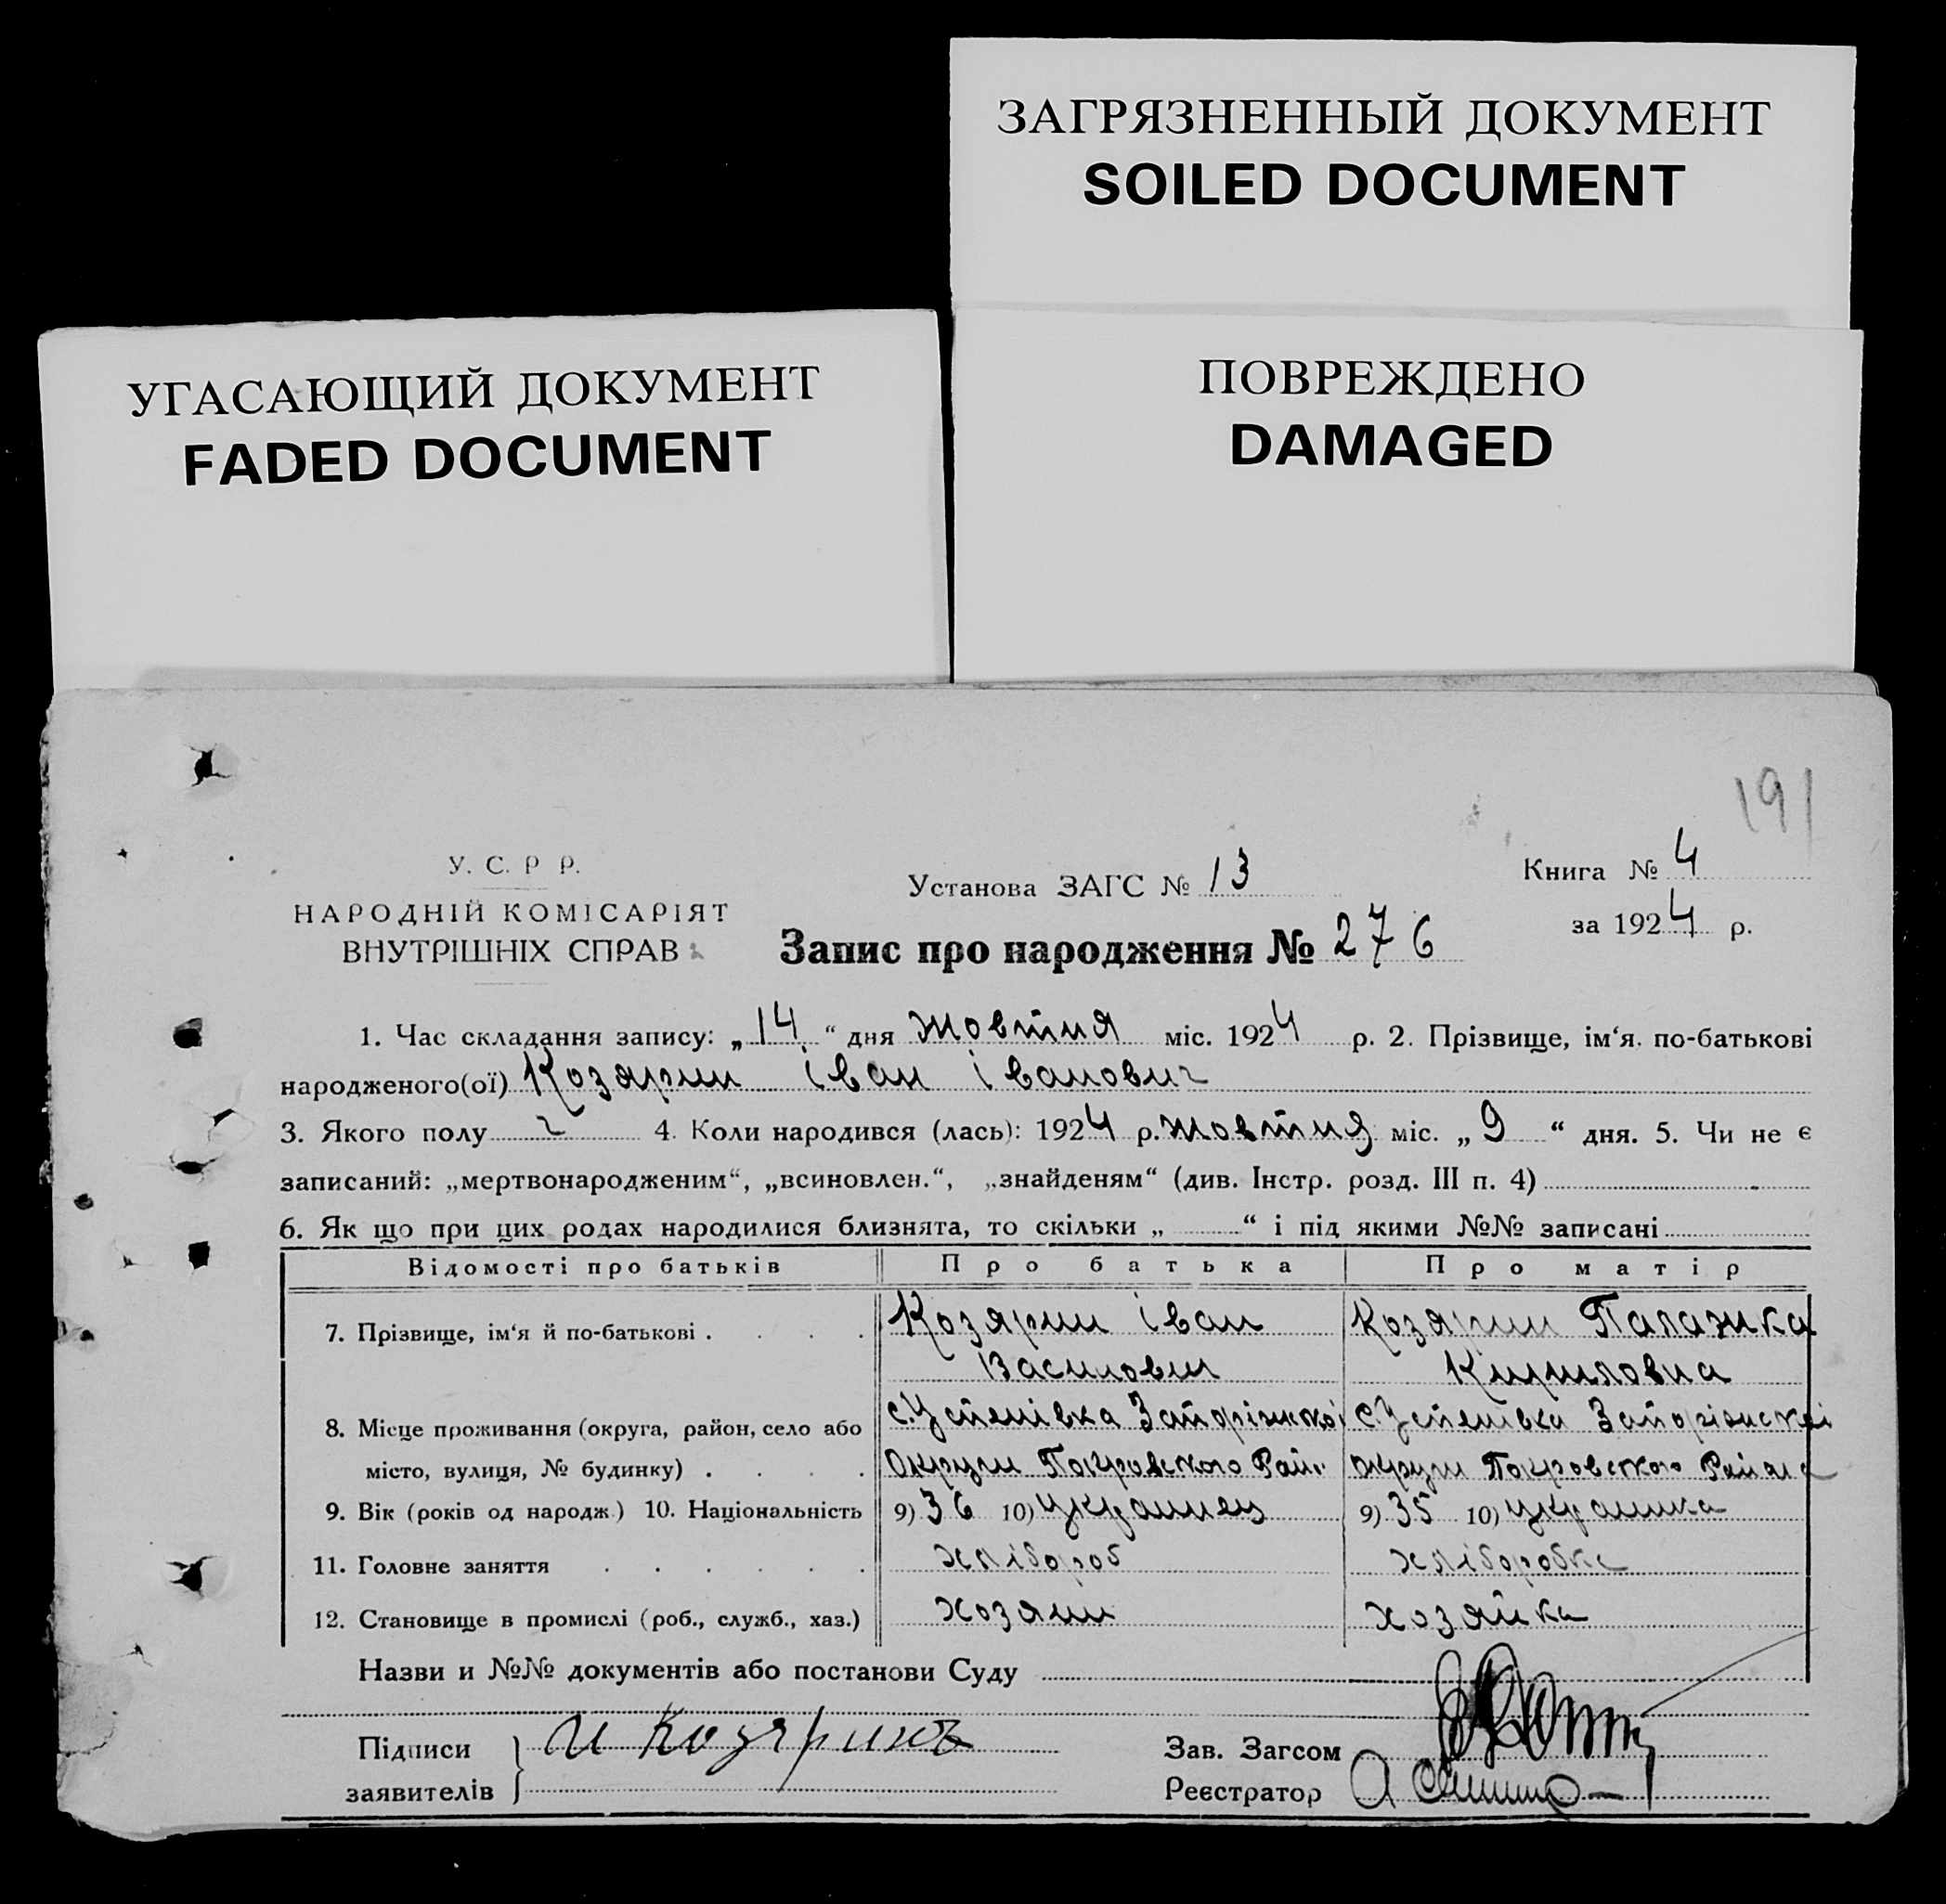 ЗАГРЯЗНЕННЫЙ ДОКУМЕНТ
SOILED DOCUMENT
УГАСАЮЩИЙ ДОКУМЕНТ
FADED DOCUMENT
ПОВРЕЖДЕНО
DAMAGED
191
У. С. Р Р.
НАРОДНІЙ КОМІСАРІЯТ
ВНУТРІШНІХ СПРАВ
Установа ЗАГС № 13
Книга № 4
за 1924 р.
Запис про народження № 276
1. Час складання запису: „14“ дня жовтня міс. 1924 р. 2. Прізвище, ім‘я. по-батькові
народженого(ої) Козярин іван іванович
3. Якого полу ч 4. Коли народився (лась): 1924 р. жовтня міс. „9“ дня. 5. Чи не є
записаний: „мертвонародженим“, „всиновлен.“, „знайденям“ (див. Інстр. розд. III п. 4)
6. Як що при цих родах народилися близнята, то скільки „ “ і під якими №№ записані
Відомості про батьків Про батька Про матір
7. Прізвище, ім‘я й по-батькові . . . . Козярин іван Козярин Палажка
Василович Кириловна
8. Місце проживання (округа, район, село або с. Успенівка Запоріжської с. Успенівка Запоріжської
місто, вулиця, № будинку) . . . . Округи Покровского Рай. округи Покровского Района
9. Вік (років од народж.) 10. Національність 9) 36 10) українец 9) 35 10) українка
11. Головне заняття . . . . . . хлібороб хліборобка
12. Становище в промислі (роб., служб., хаз.) хозяин хозяйка
Назви и №№ документів або постанови Суду
Підписи И Козяринъ Зав. Загсом
заявителів Реєстратор